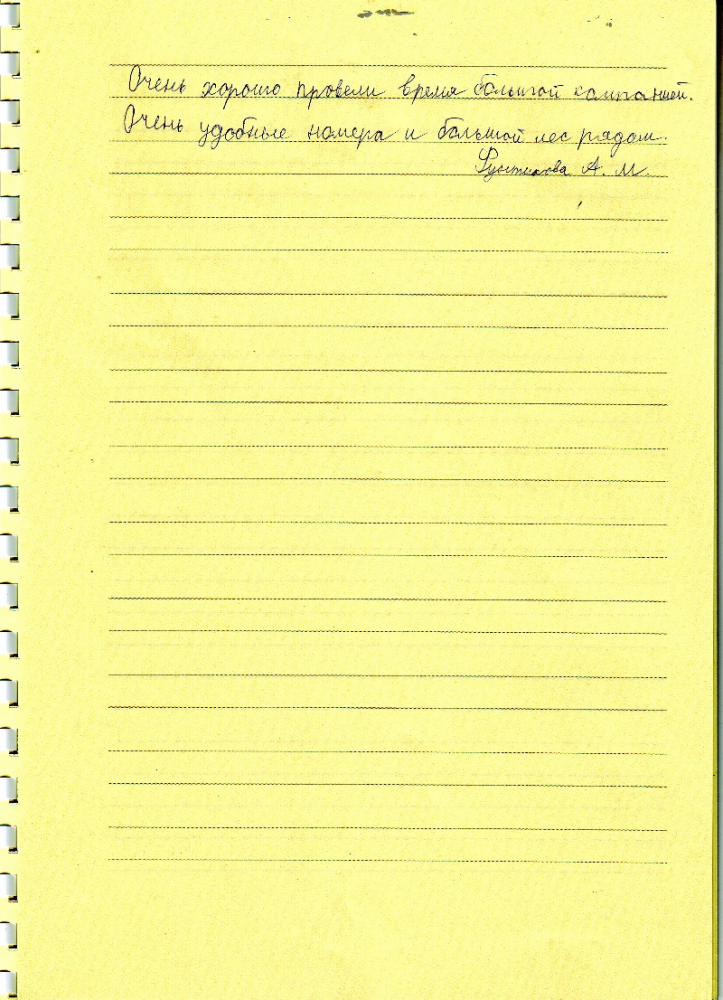 Очень хорошо провели время большой компанией.
Очень удобные номера и большой лес рядом.
А. М.